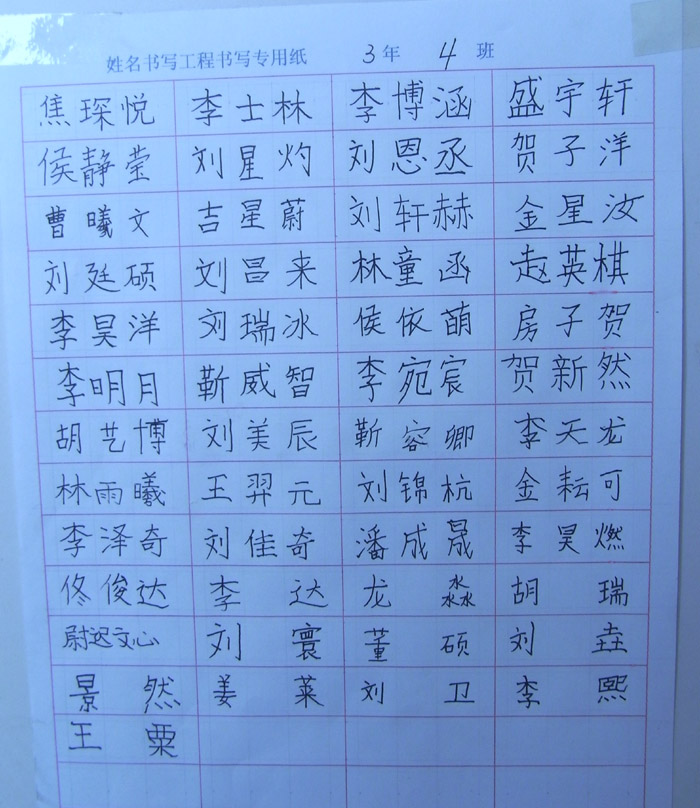 姓名书写工程书写专用纸 3年 4班
焦琛悦 李士林 李博涵 盛宇轩
侯静莹 刘星灼 刘恩丞 贺子洋
曹曦文 吉星蔚 刘轩赫 金星汝
刘廷硕 刘昌来 林童函 赵英棋
李昊洋 刘瑞冰 侯依萌 房子贺
李明月 靳威智 李宛宸 贺新然
胡艺博 刘美辰 靳容卿 李天龙
林雨曦 王羿元 刘锦杭 金耘可
李泽奇 刘佳奇 潘成晟 李昊燃
佟俊达 李达 龙淼 胡瑞
尉迟文心 刘寰 董硕 刘垚
景然 姜莱 刘卫 李熙
王粟